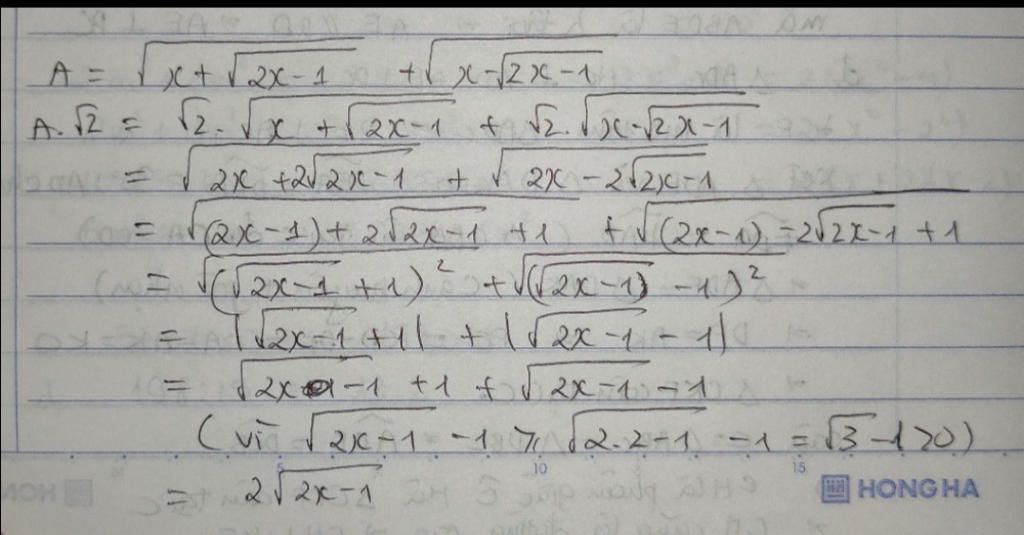 A = √(x + √(2x-1)) + √(x - √(2x-1))
A.√2 = √2 . √(x + √(2x-1)) + √2 . √(x - √(2x-1))
= √(2x + 2√(2x-1)) + √(2x - 2√(2x-1))
= √((2x-1) + 2√(2x-1) + 1) + √((2x-1) - 2√(2x-1) + 1)
= √((√(2x-1) + 1)²) + √((√(2x-1) - 1)²)
= |√(2x-1) + 1| + |√(2x-1) - 1|
= √(2x-1) + 1 + √(2x-1) - 1
(vì √(2x-1) - 1 ≥ √(2.2-1) - 1 = √3 - 1 > 0)
5 10 15
= 2√(2x-1)
HONG HA